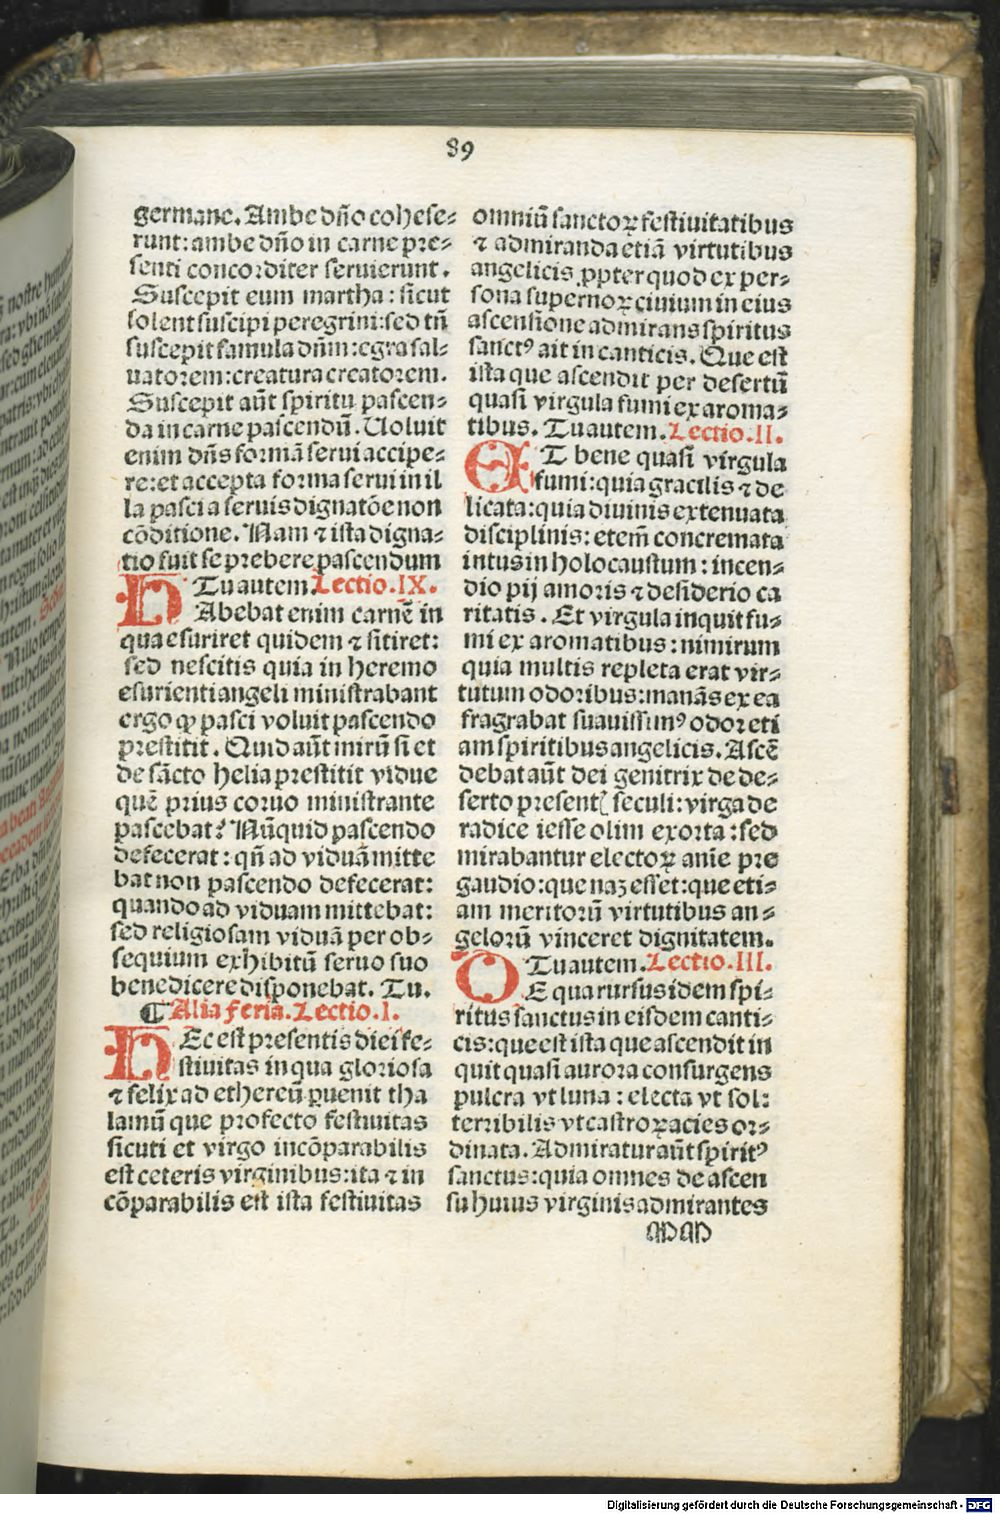 89
germane. Ambe dño cohese⸗
runt: ambe dño in carne pre⸗
senti concorditer seruierunt.
Suscepit eum martha: sicut
solent suscipi peregrini: sed tñ
suscepit famula dñm: egra sal⸗
uatorem: creatura creatorem.
Suscepit aūt spiritu pascen⸗
da in carne pascendū. Uoluit
enim dñs formā serui accipe⸗
re: et accepta forma serui in il
la pasci a seruis dignatōe non
cōditione. Nam ⁊ ista digna⸗
tio fuit se prebere pascendum
Tu autem. Lectio. IX.
HAbebat enim carnē in
qua esuriret quidem ⁊ sitiret:
sed nescitis quia in heremo
esurienti angeli ministrabant
ergo ꝙ pasci voluit pascendo
prestitit. Quid aūt mirū si et
de sācto helia prestitit vidue
quē prius coruo ministrante
pascebat? Nūquid pascendo
defecerat: qñ ad viduā mitte
bat non pascendo defecerat:
quando ad viduam mittebat:
sed religiosam viduā per ob⸗
sequium exhibitū seruo suo
benedicere disponebat. Tu.
¶ Alia feria. Lectio. I.
HEc est presentis diei fe⸗
stiuitas in qua gloriosa
⁊ felix ad ethereū ꝑuenit tha
lamū que profecto festiuitas
sicuti et virgo incōparabilis
est ceteris virginibus: ita ⁊ in
cōparabilis est ista festiuitas
omniū sanctoꝝ festiuitatibus
⁊ admiranda etiā virtutibus
angelicis ꝓpter quod ex per⸗
sona supernoꝝ ciuium in eius
ascensione admirans spiritus
sanctꝰ ait in canticis. Que est
ista que ascendit per desertū
quasi virgula fumi ex aroma⸗
tibus. Tu autem. Lectio. II.
ET bene quasi virgula
fumi: quia gracilis ⁊ de
licata: quia diuinis extenuata
disciplinis: etem̄ concremata
intus in holocaustum: incen⸗
dio pij amoris ⁊ desiderio ca
ritatis. Et virgula inquit fu⸗
mi ex aromatibus: nimirum
quia multis repleta erat vir⸗
tutum odoribus: manās ex ea
fragrabat suauissimꝰ odor eti
am spiritibus angelicis. Ascē
debat aūt dei genitrix de de⸗
serto presentꝭ seculi: virga de
radice iesse olim exorta: sed
mirabantur electoꝝ anie pre
gaudio: que naꝫ esset: que eti⸗
am meritorū virtutibus an⸗
gelorū vinceret dignitatem.
Tu autem. Lectio. III.
DE qua rursus idem spi⸗
ritus sanctus in eisdem canti⸗
cis: que est ista que ascendit in
quit quasi aurora consurgens
pulcra vt luna: electa vt sol:
terribilis vt castroꝝ acies or⸗
dinata. Admiratur aūt spiritꝰ
sanctus: quia omnes de ascen
su huius virginis admirantes
Digitalisierung gefördert durch die Deutsche Forschungsgemeinschaft - DFG